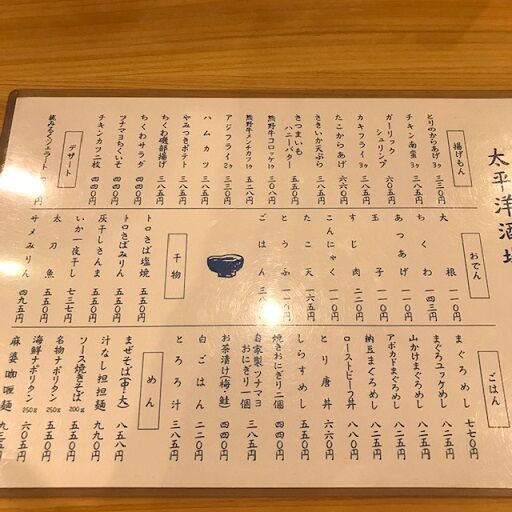 太平洋酒場
揚げもん
とりのからあげ 3ヶ 三三〇円
チキン南蛮 3ヶ 三八五円
ガーリックシュリンプ 六六〇円
カキフライ 3ヶ
たこからあげ
ささいか天ぷら 三八五円
さつまいもハニーバター
熊野牛コロッケ 1ヶ
熊野牛メンチカツ 1ヶ
アジフライ 2ヶ 三三〇円
ハムカツ 三八五円
やみつきポテト 三八五円
ちくわ磯部揚げ 三八五円
ちくわサラダ 四四〇円
ツナマヨちくいそ 四四〇円
チキンカツ 二枚 四四〇円
デザート
おでん
大根
ちくわ 一四三円
あつあげ 一一〇円
玉子 一一〇円
すじ肉 二二〇円
こんにゃく 一一〇円
たこ天 一六五円
とうふ
ごはん
干物
トロさば塩焼 五五〇円
トロさばみりん 五五〇円
灰干しさんま 五五〇円
いか一夜干し 七三七円
太刀魚 五五〇円
サメみりん 四九五円
ごはん
まぐろめし 七七〇円
まぐろユッケめし
山かけまぐろめし
アボカドまぐろめし
納豆まぐろめし 八二五円
ローストビーフ丼 八八〇円
とり唐丼 六六〇円
しらすめし 五五〇円
焼きおにぎり二個
自家製ツナマヨおにぎり一個
お茶漬け(梅、鮭) 三八五円
白ごはん 二二〇円
とろろ汁 三八五円
めん
まぜそば(中・大) 八五八円
汁なし担担麺 九九〇円
ソース焼きそば 200g 五五〇円
名物ナポリタン 250g 五五〇円
海鮮ナポリタン 250g 六〇五円
麻婆咖喱麺 九三五円